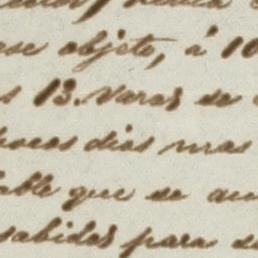 ese objeto, á 10
s 13. varas de
pocos dias mas
able que se au
sabidas para